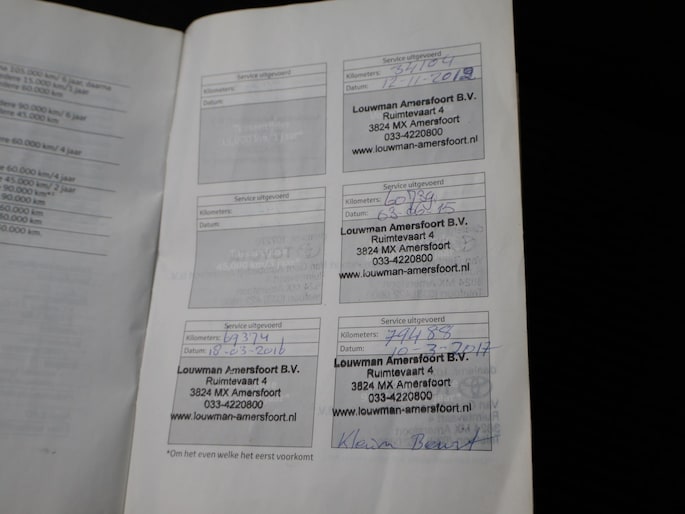 ne 105.000 km/ 6 jaar, daarna
edere 15.000 km/1 jaar
edere 60.000 km
edere 90.000 km/ 6 jaar
edere 45.000 km
edere 60.000 km/ 4 jaar
e 60.000 km/4 jaar
e 45.000 km/ 2 jaar
90.000 km
90.000 km
60.000 km
60.000 km
90.000 km.
Service uitgevoerd
Kilometers:
Datum:
Service uitgevoerd
Kilometers: 34104
Datum: 12-11-2012
Louwman Amersfoort B.V.
Ruimtevaart 4
3824 MX Amersfoort
033-4220800
www.louwman-amersfoort.nl
Service uitgevoerd
Kilometers:
Datum:
Service uitgevoerd
Kilometers: 60739
Datum: 03-06-15
Louwman Amersfoort B.V.
Ruimtevaart 4
3824 MX Amersfoort
033-4220800
www.louwman-amersfoort.nl
Service uitgevoerd
Kilometers: 69374
Datum: 18-03-2016
Louwman Amersfoort B.V.
Ruimtevaart 4
3824 MX Amersfoort
033-4220800
www.louwman-amersfoort.nl
Service uitgevoerd
Kilometers: 79488
Datum: 10-3-2017
Louwman Amersfoort B.V.
Ruimtevaart 4
3824 MX Amersfoort
033-4220800
www.louwman-amersfoort.nl
Kleine Beurt
*Om het even welke het eerst voorkomt